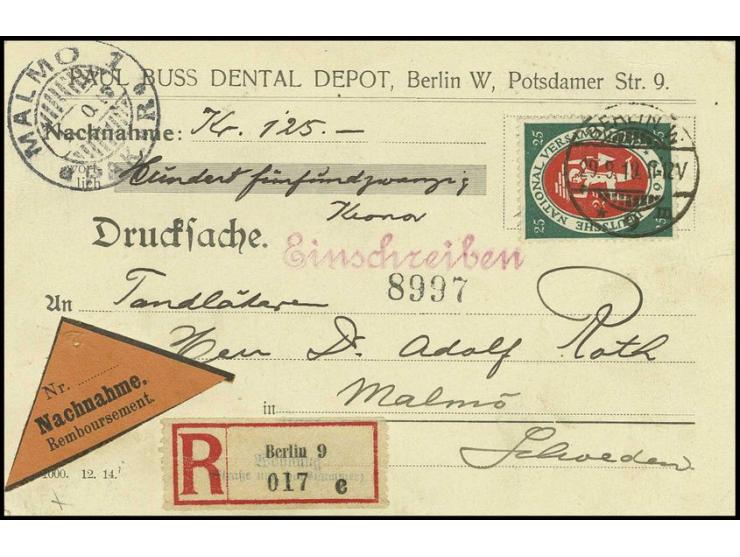 MALMÖ 1
PAUL BUSS DENTAL DEPOT, Berlin W, Potsdamer Str. 9.
Nachnahme: Kr. 125.—
wört-
lich Hundert fünfundzwanzig
Kronor
Drucksache.
Einschreiben
8997
25 25
DEUTSCHE NATIONAL VERSAMMLUNG 1919
25 25
BERLIN
An Tandläkaren
Herr Dr. Adolf Roth
in Malmö
Schweden
Nr. ........
Nachnahme.
Remboursement.
R
Berlin 9
Wohnung
(Straße und Hausnummer)
017 e
1000. 12. 14.